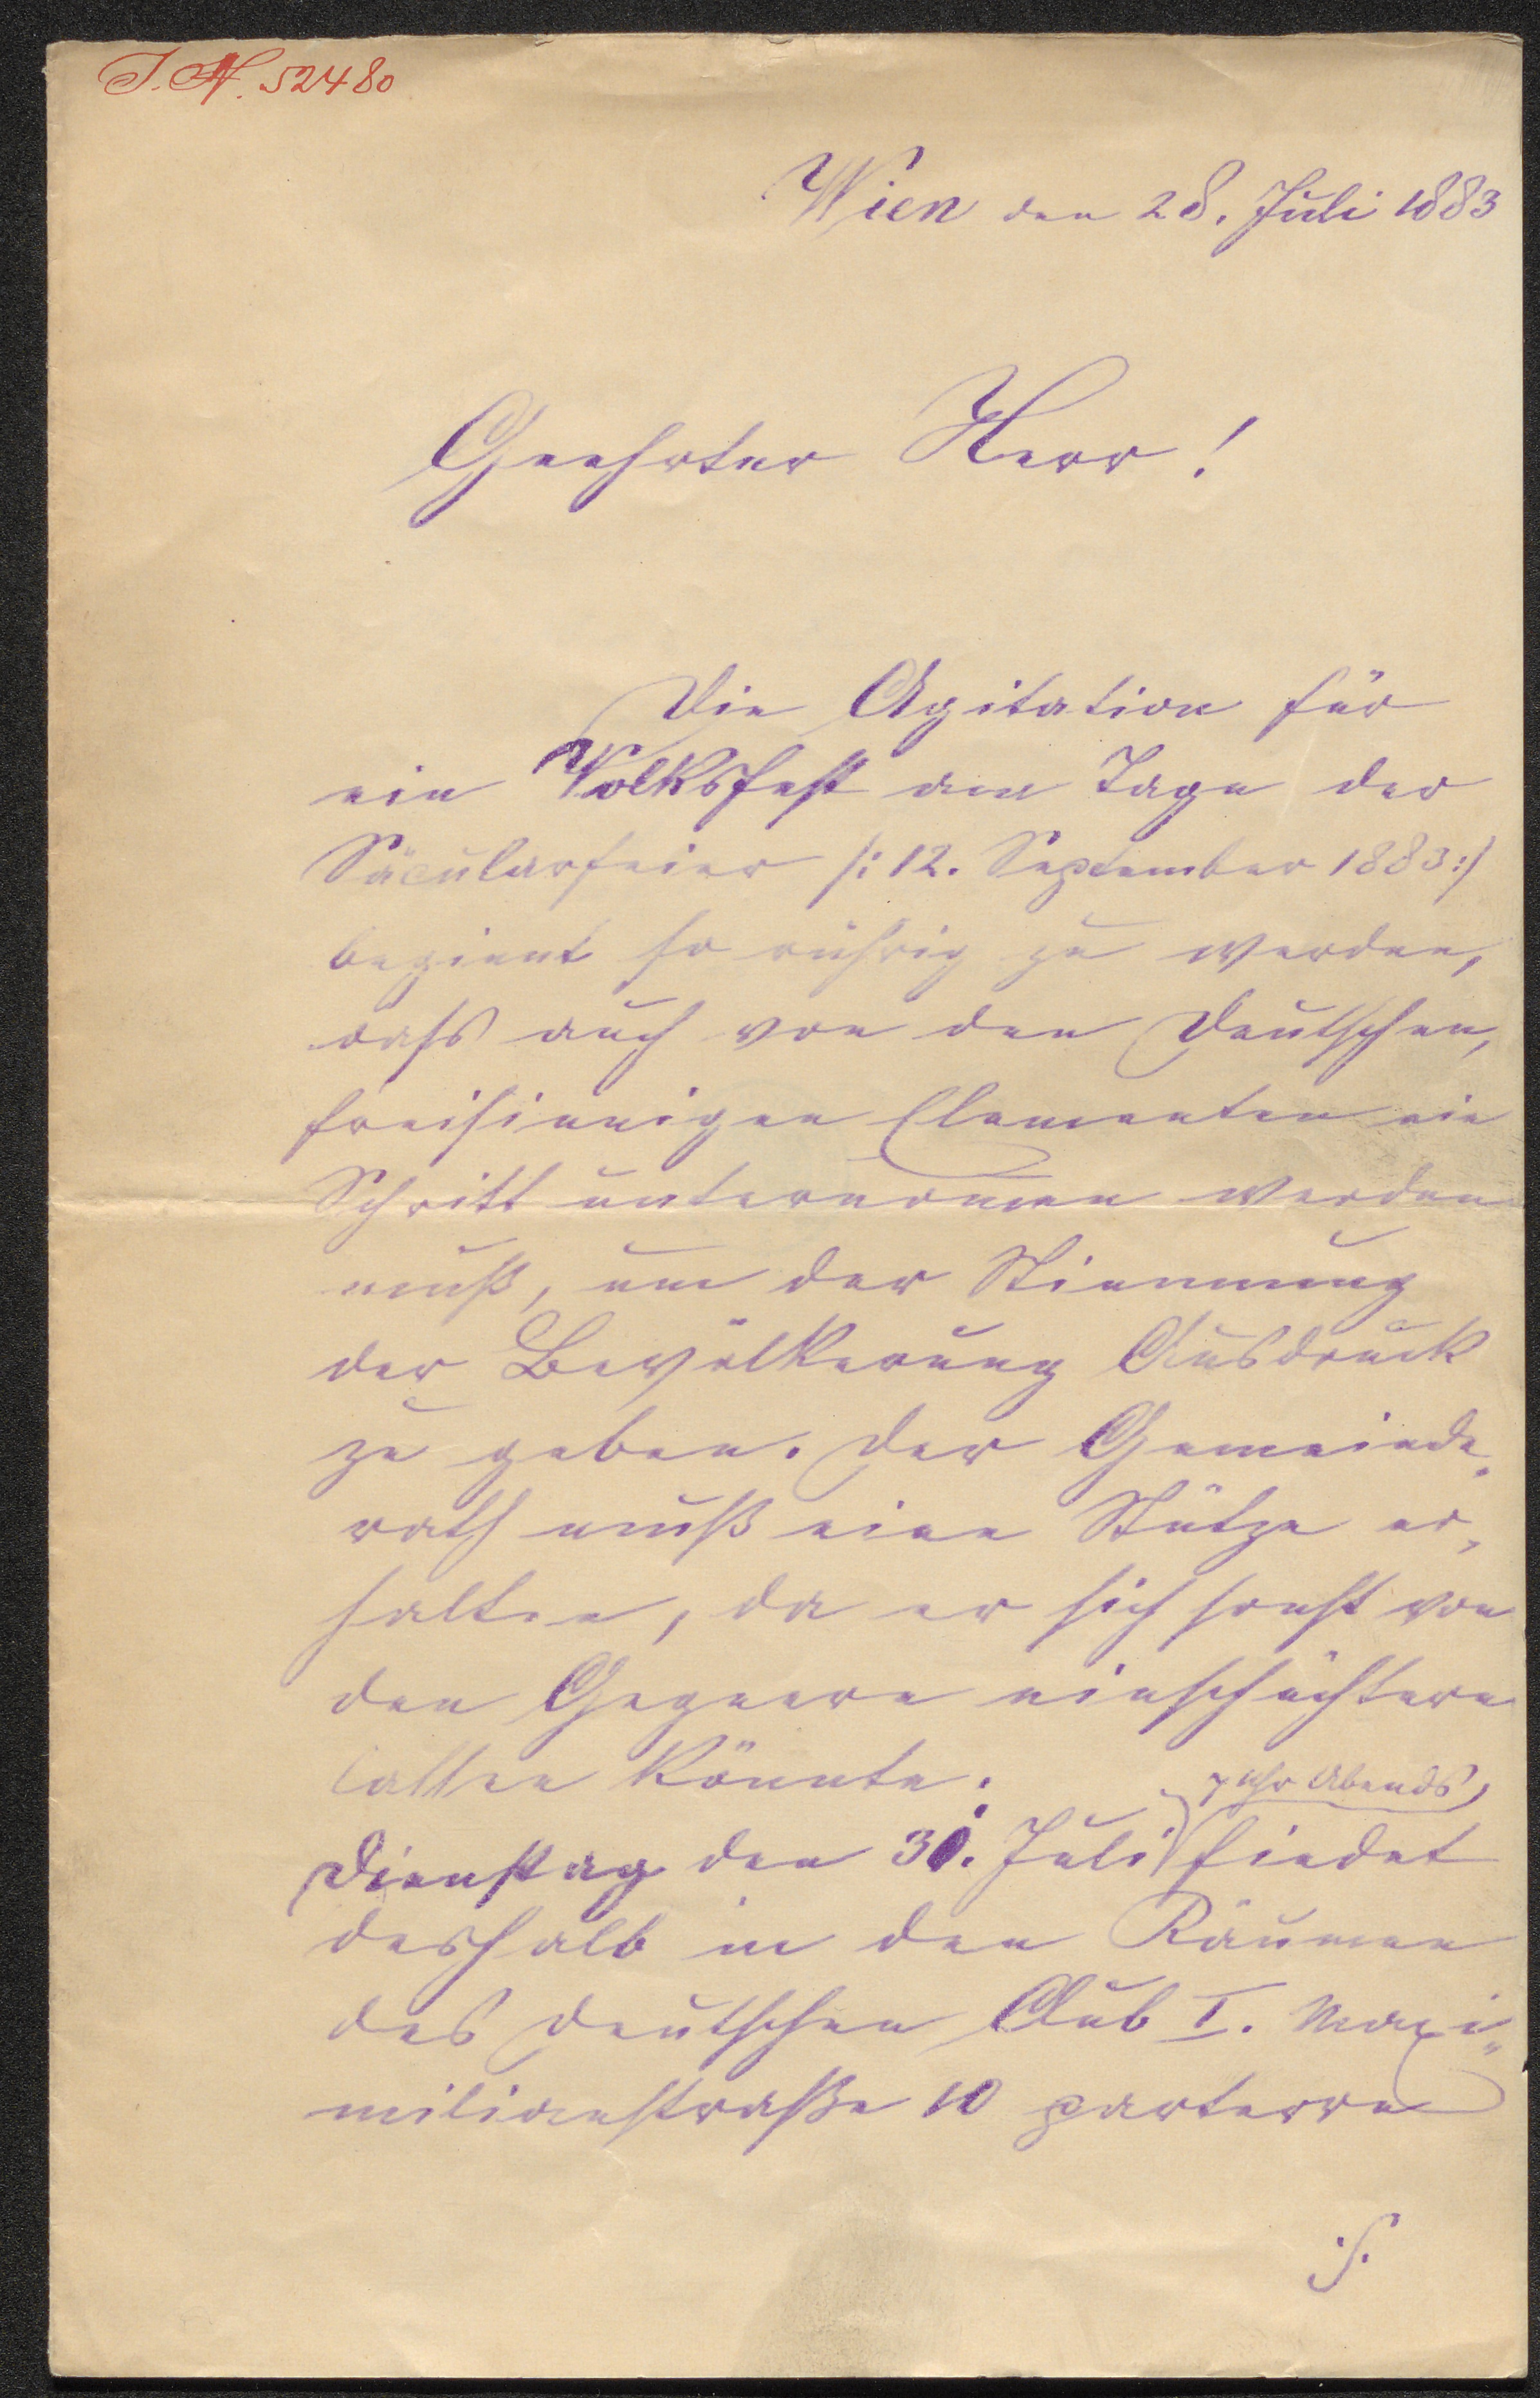 I.N. 52480
Wien den 28. Juli 1883
Geehrter Herr!
Die Agitation für
ein Volksfest am Tage der
Säcularfeier /: 12. September 1883 :/
beginnt so rührig zu werden,
dass auch von den Deutschen,
freisinnigen Elementen ein
Schritt unternom̅en werden
muß, um der Stimmung
der Bevölkerung Ausdruck
zu geben. Der Gemeinde-
rath muß eine Stütze er-
halten, da er sich sonst von
den Gegnern einschüchtern
lassen könnte.
7 Uhr Abends
Dienstag den 31. Juli findet
deshalb in den Räumen
des deutschen Club I. Maxi-
milianstraße 10 parterre
./.